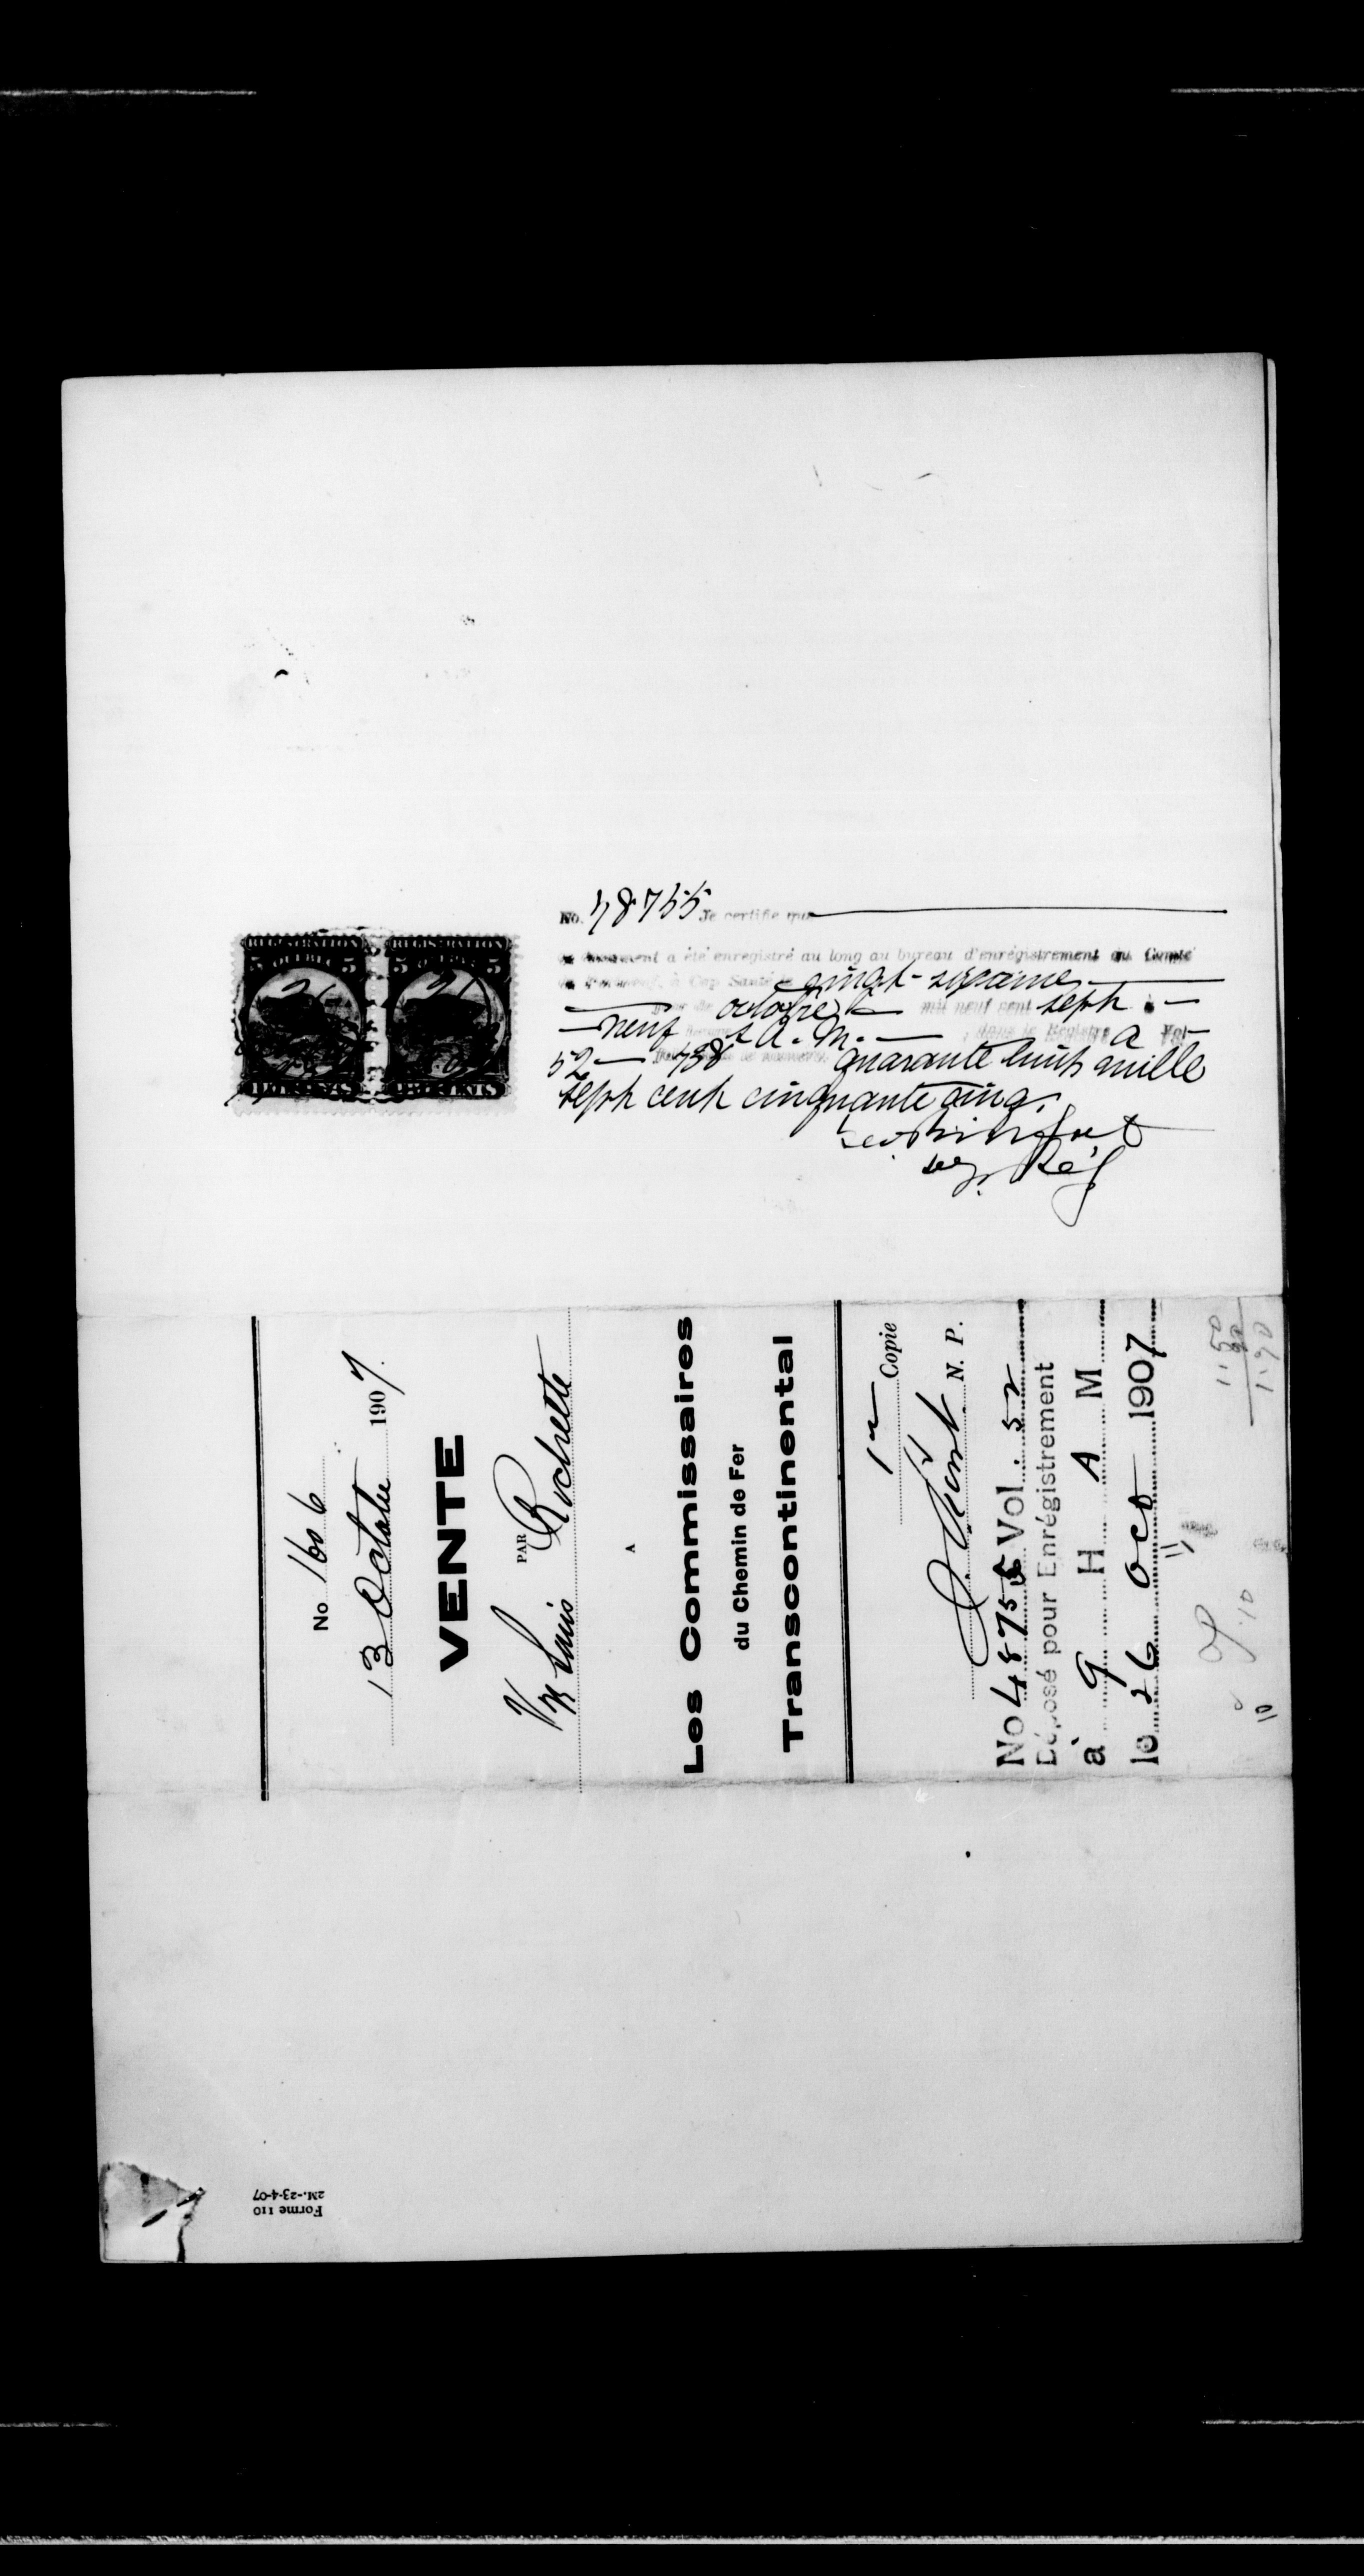 No. 48755 Je certifie que
ce document a été enregistré au long au bureau d'enrégistrement du Comté
de Portneuf, à Cap Santé le vingt-sixieme
jour de octobre mil neuf cent sept à
neuf A. M. dans le Registre a Vol
52 738 quarante huit mille
sept cent cinquante cinq.
Dep. Rég
REGISTRATION REGISTRATION
5 QUEBEC 5 5 QUEBEC 5
FIVE CENTS FIVE CENTS
No 1606
13 Octobre 1907.
VENTE
PAR
Louis Rochette
A
Les Commissaires
du Chemin de Fer
Transcontinental
1re Copie
N. P.
No 48755 Vol. 52
Déposé pour Enrégistrement
à 9 H A M
le 26 oct 1907
1.90
.10
10
Forme 110
2M.-23-4-07